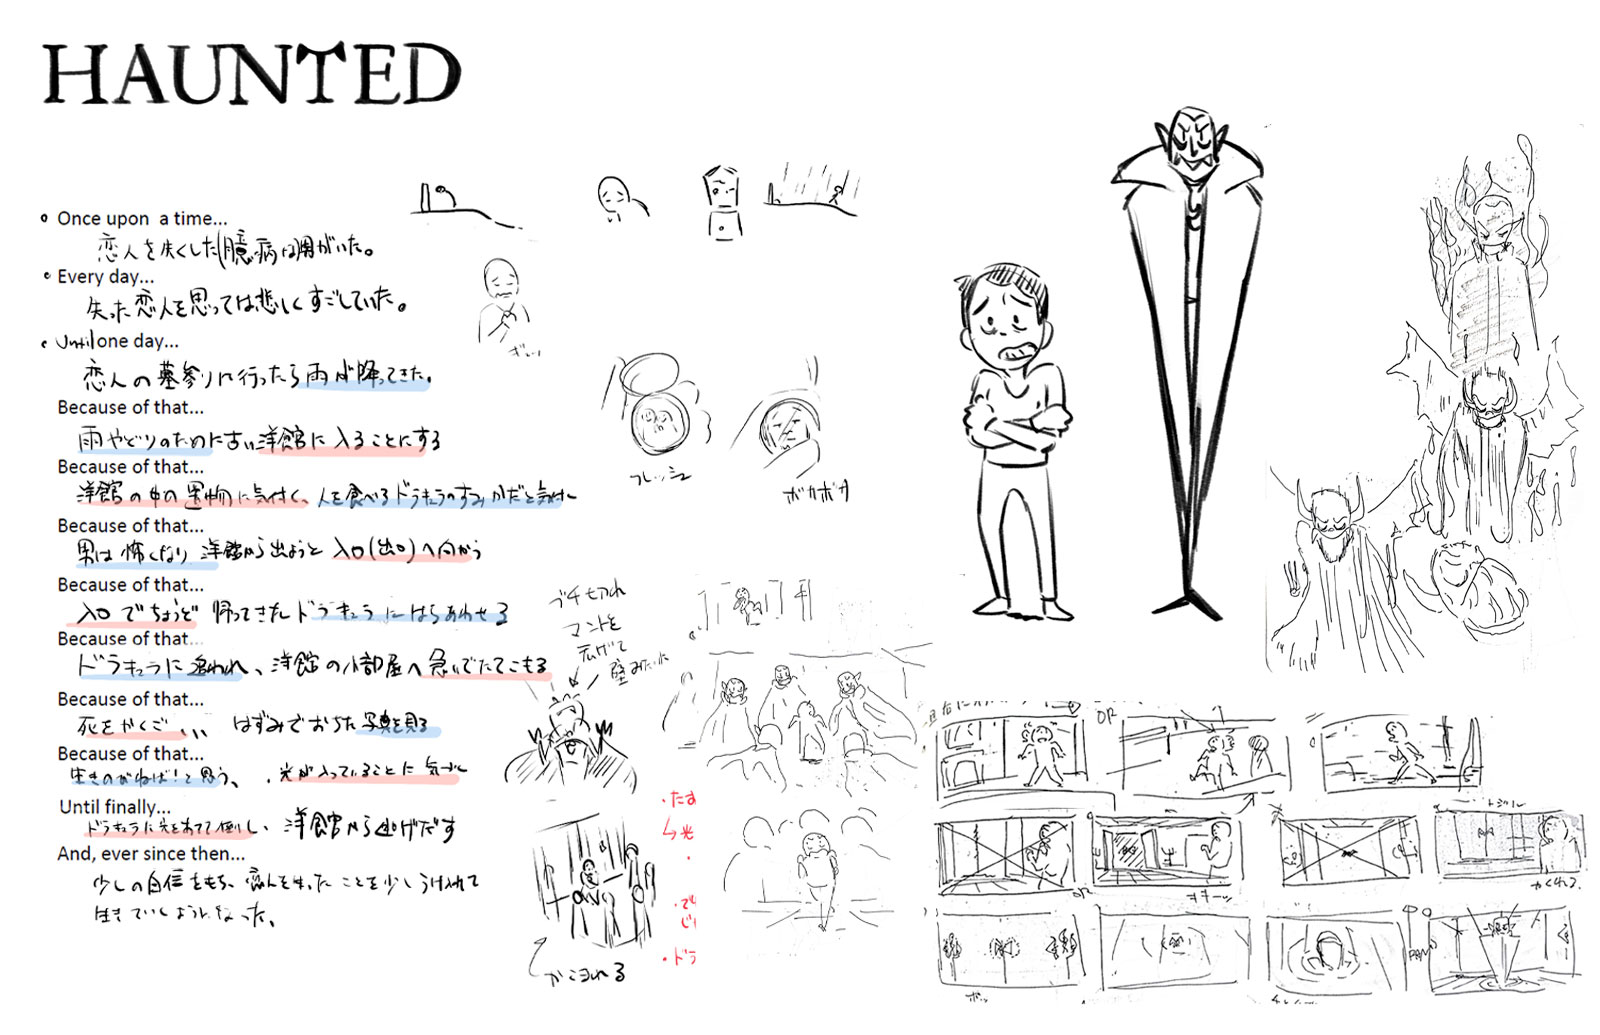 HAUNTED
Once upon a time...
恋人を失くした臆病な男がいた。
Every day...
失った恋人を思っては悲しくすごしていた。
Until one day...
恋人の墓参りに行ったら雨が降ってきた。
Because of that...
雨やどりのために古い洋館に入ることにする
Because of that...
洋館の中の異物に気付く、人を食べるドラキュラのすみかだと気付く
Because of that...
男は怖くなり洋館から出ようと入口(出口)へ向かう
Because of that...
入口でちょうど帰ってきたドラキュラにはちあわせる
Because of that...
ドラキュラに追われ、洋館の小部屋へ急いでたてこもる
Because of that...
死をかくご、、、はずみでおちた写真を見る
Because of that...
生きのびねば!と思う、・光が入っていることに気づく
Until finally...
ドラキュラに光をあてて倒し、洋館から逃げだす
And, ever since then...
少しの自信をもち、恋人を失ったことを少しうけ入れて
生きていくようになった。
フレッシュ
ボカボカ
ブチ切れ
マントを
広げて
壁みたいに
かこまれる
・たす
↳光
・ドラ
OR
or
かくれる